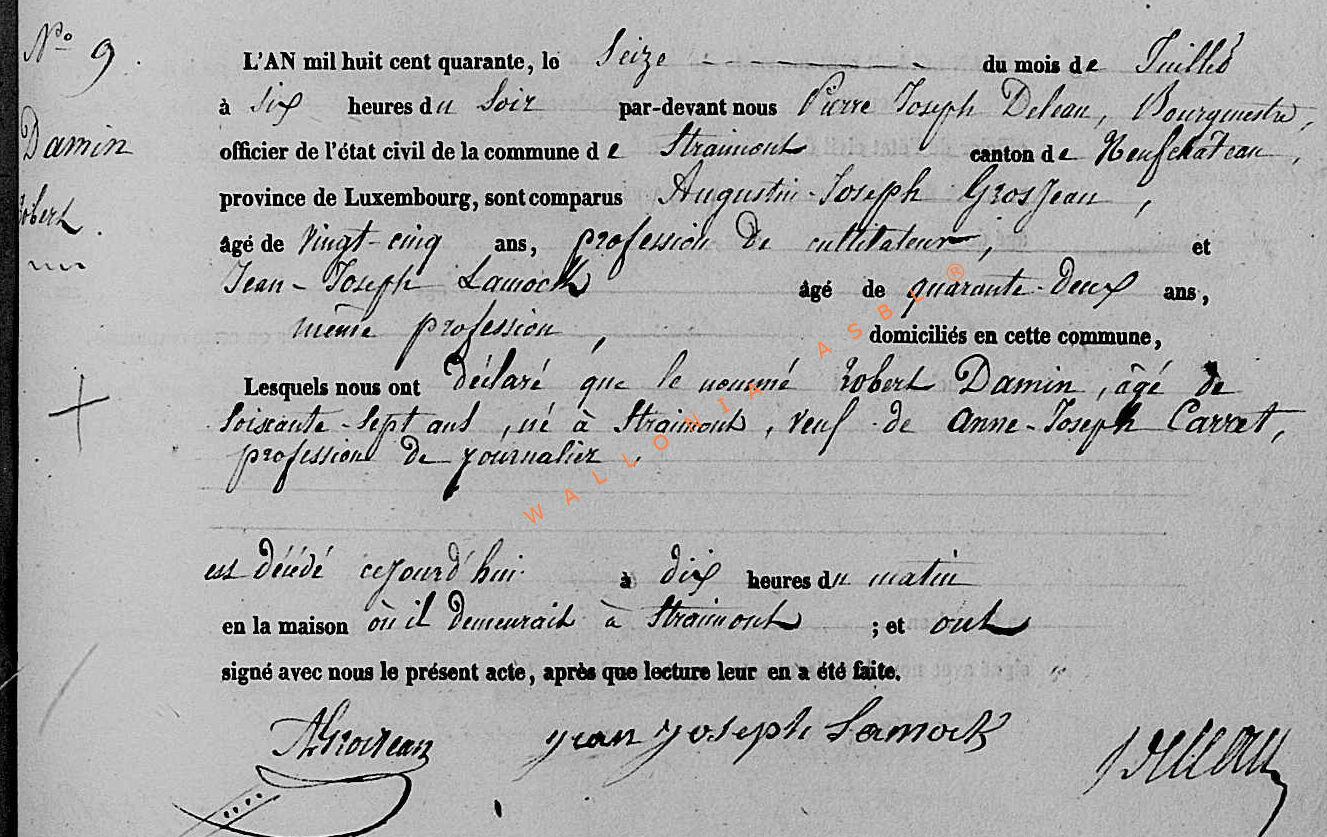 N.º 9.
Damin
Robert.
L'AN mil huit cent quarante, le Seize du mois de Juillet
à Six heures du Soir par-devant nous Pierre Joseph Deleau, Bourgmestre,
officier de l'état civil de la commune de Straimont canton de Neufchateau,
province de Luxembourg, sont comparus Augustin-Joseph GrosJean,
âgé de Vingt-cinq ans, profession de cultivateur, et
Jean-Joseph Lamock âgé de quarante-deux ans,
même profession, domiciliés en cette commune,
Lesquels nous ont déclaré que le nommé Robert Damin, âgé de
Soixante-Sept ans, né à Straimont, Veuf de Anne-Joseph Carret,
profession de journalier.
est décédé cejourd'hui à dix heures du matin
en la maison où il demeurait à Straimont ; et ont
signé avec nous le présent acte, après que lecture leur en a été faite.
AGrosJean jean joseph Lamock Deleau
WALLONIA ASBL ®